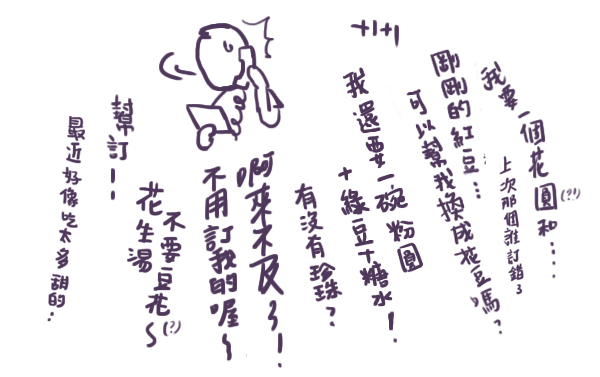 我要一個花圓(?!)和....
上次那個誰訂錯了
剛剛的紅豆...
可以幫我換成花豆嗎?
+1+1
我還要一碗粉圓
+綠豆+糖水!
有沒有珍珠?
啊來不及了!
不用訂我的喔~
不要豆花(?)
花生湯~
幫訂!!
最近好像吃太多甜的..